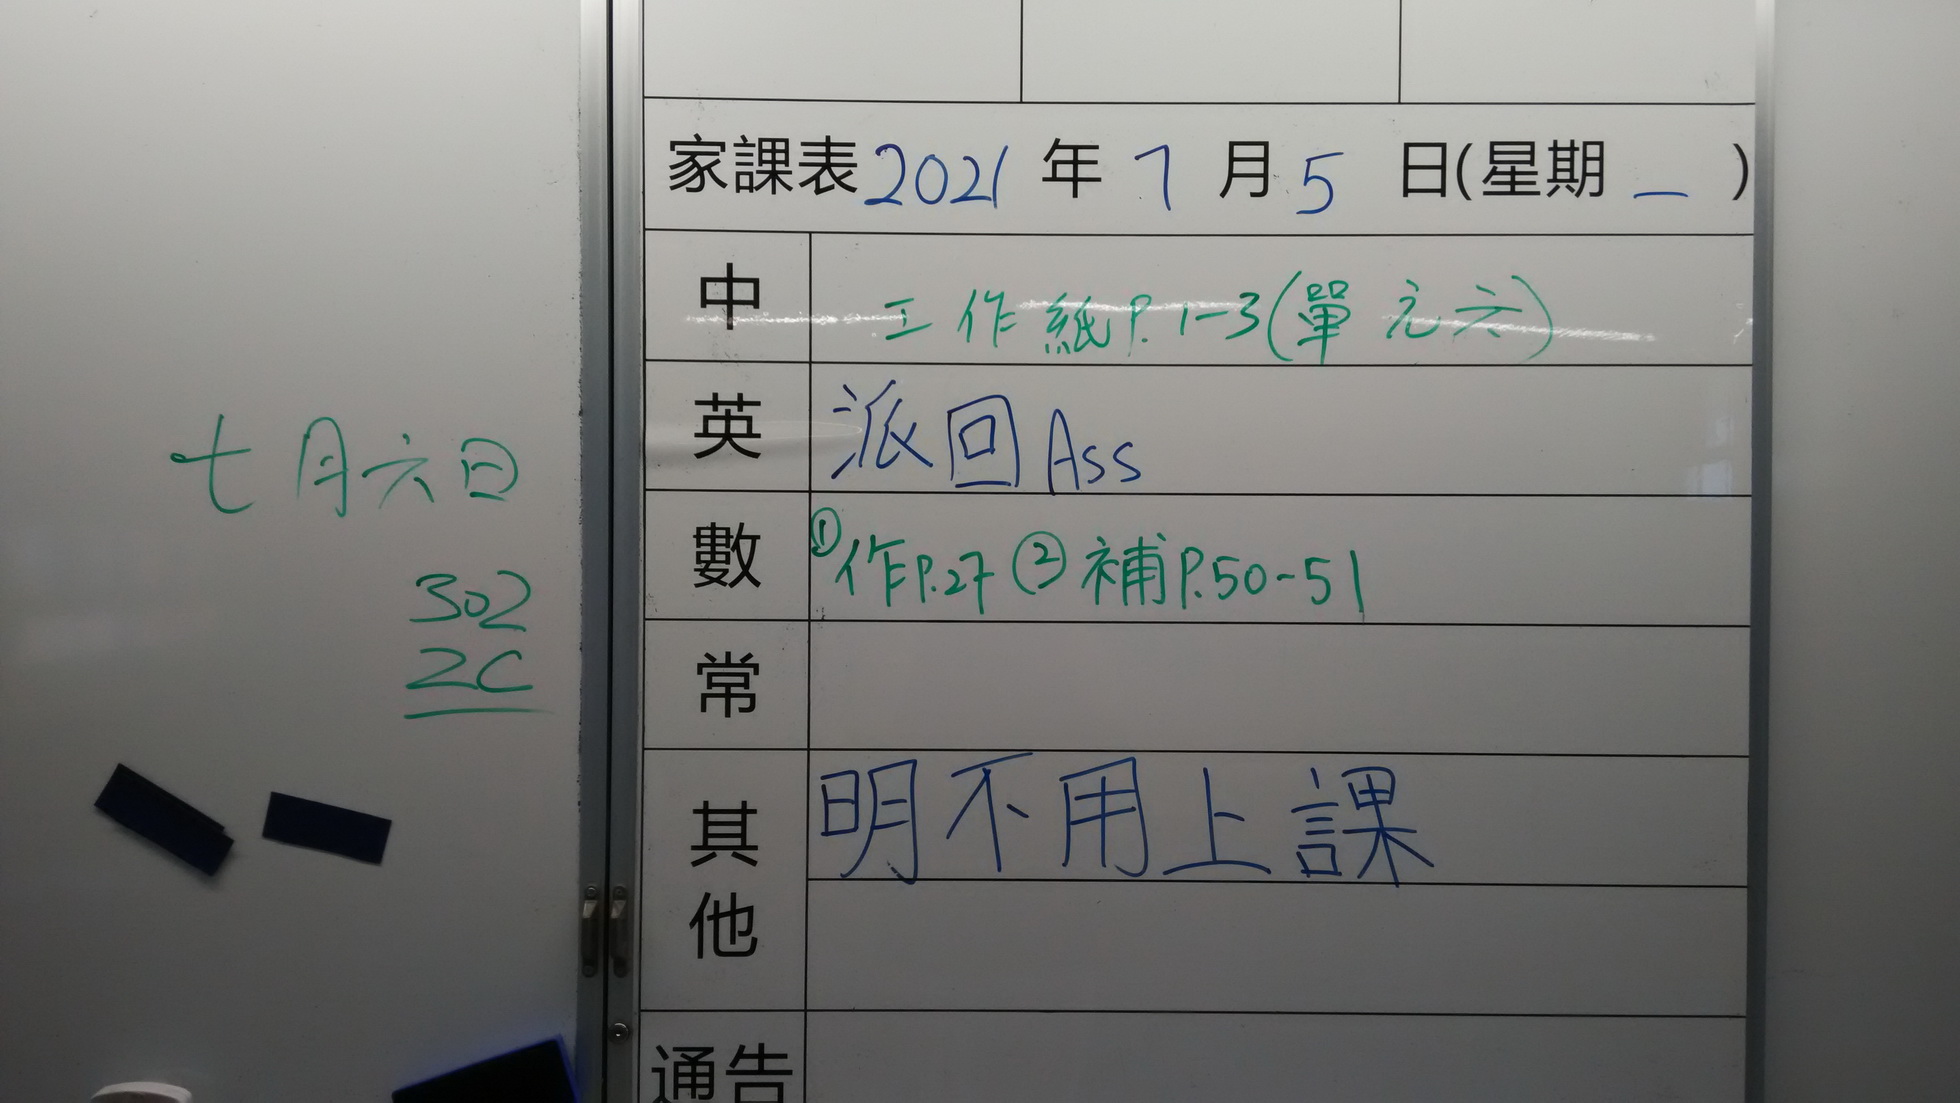 家課表 2021 年 7 月 5 日(星期 一 )
中 工作紙P.1-3(單元六)
英 派回Ass
數 ①作P.27 ②補P.50-51
常
其他 明不用上課
通告
七月六日
302
2C